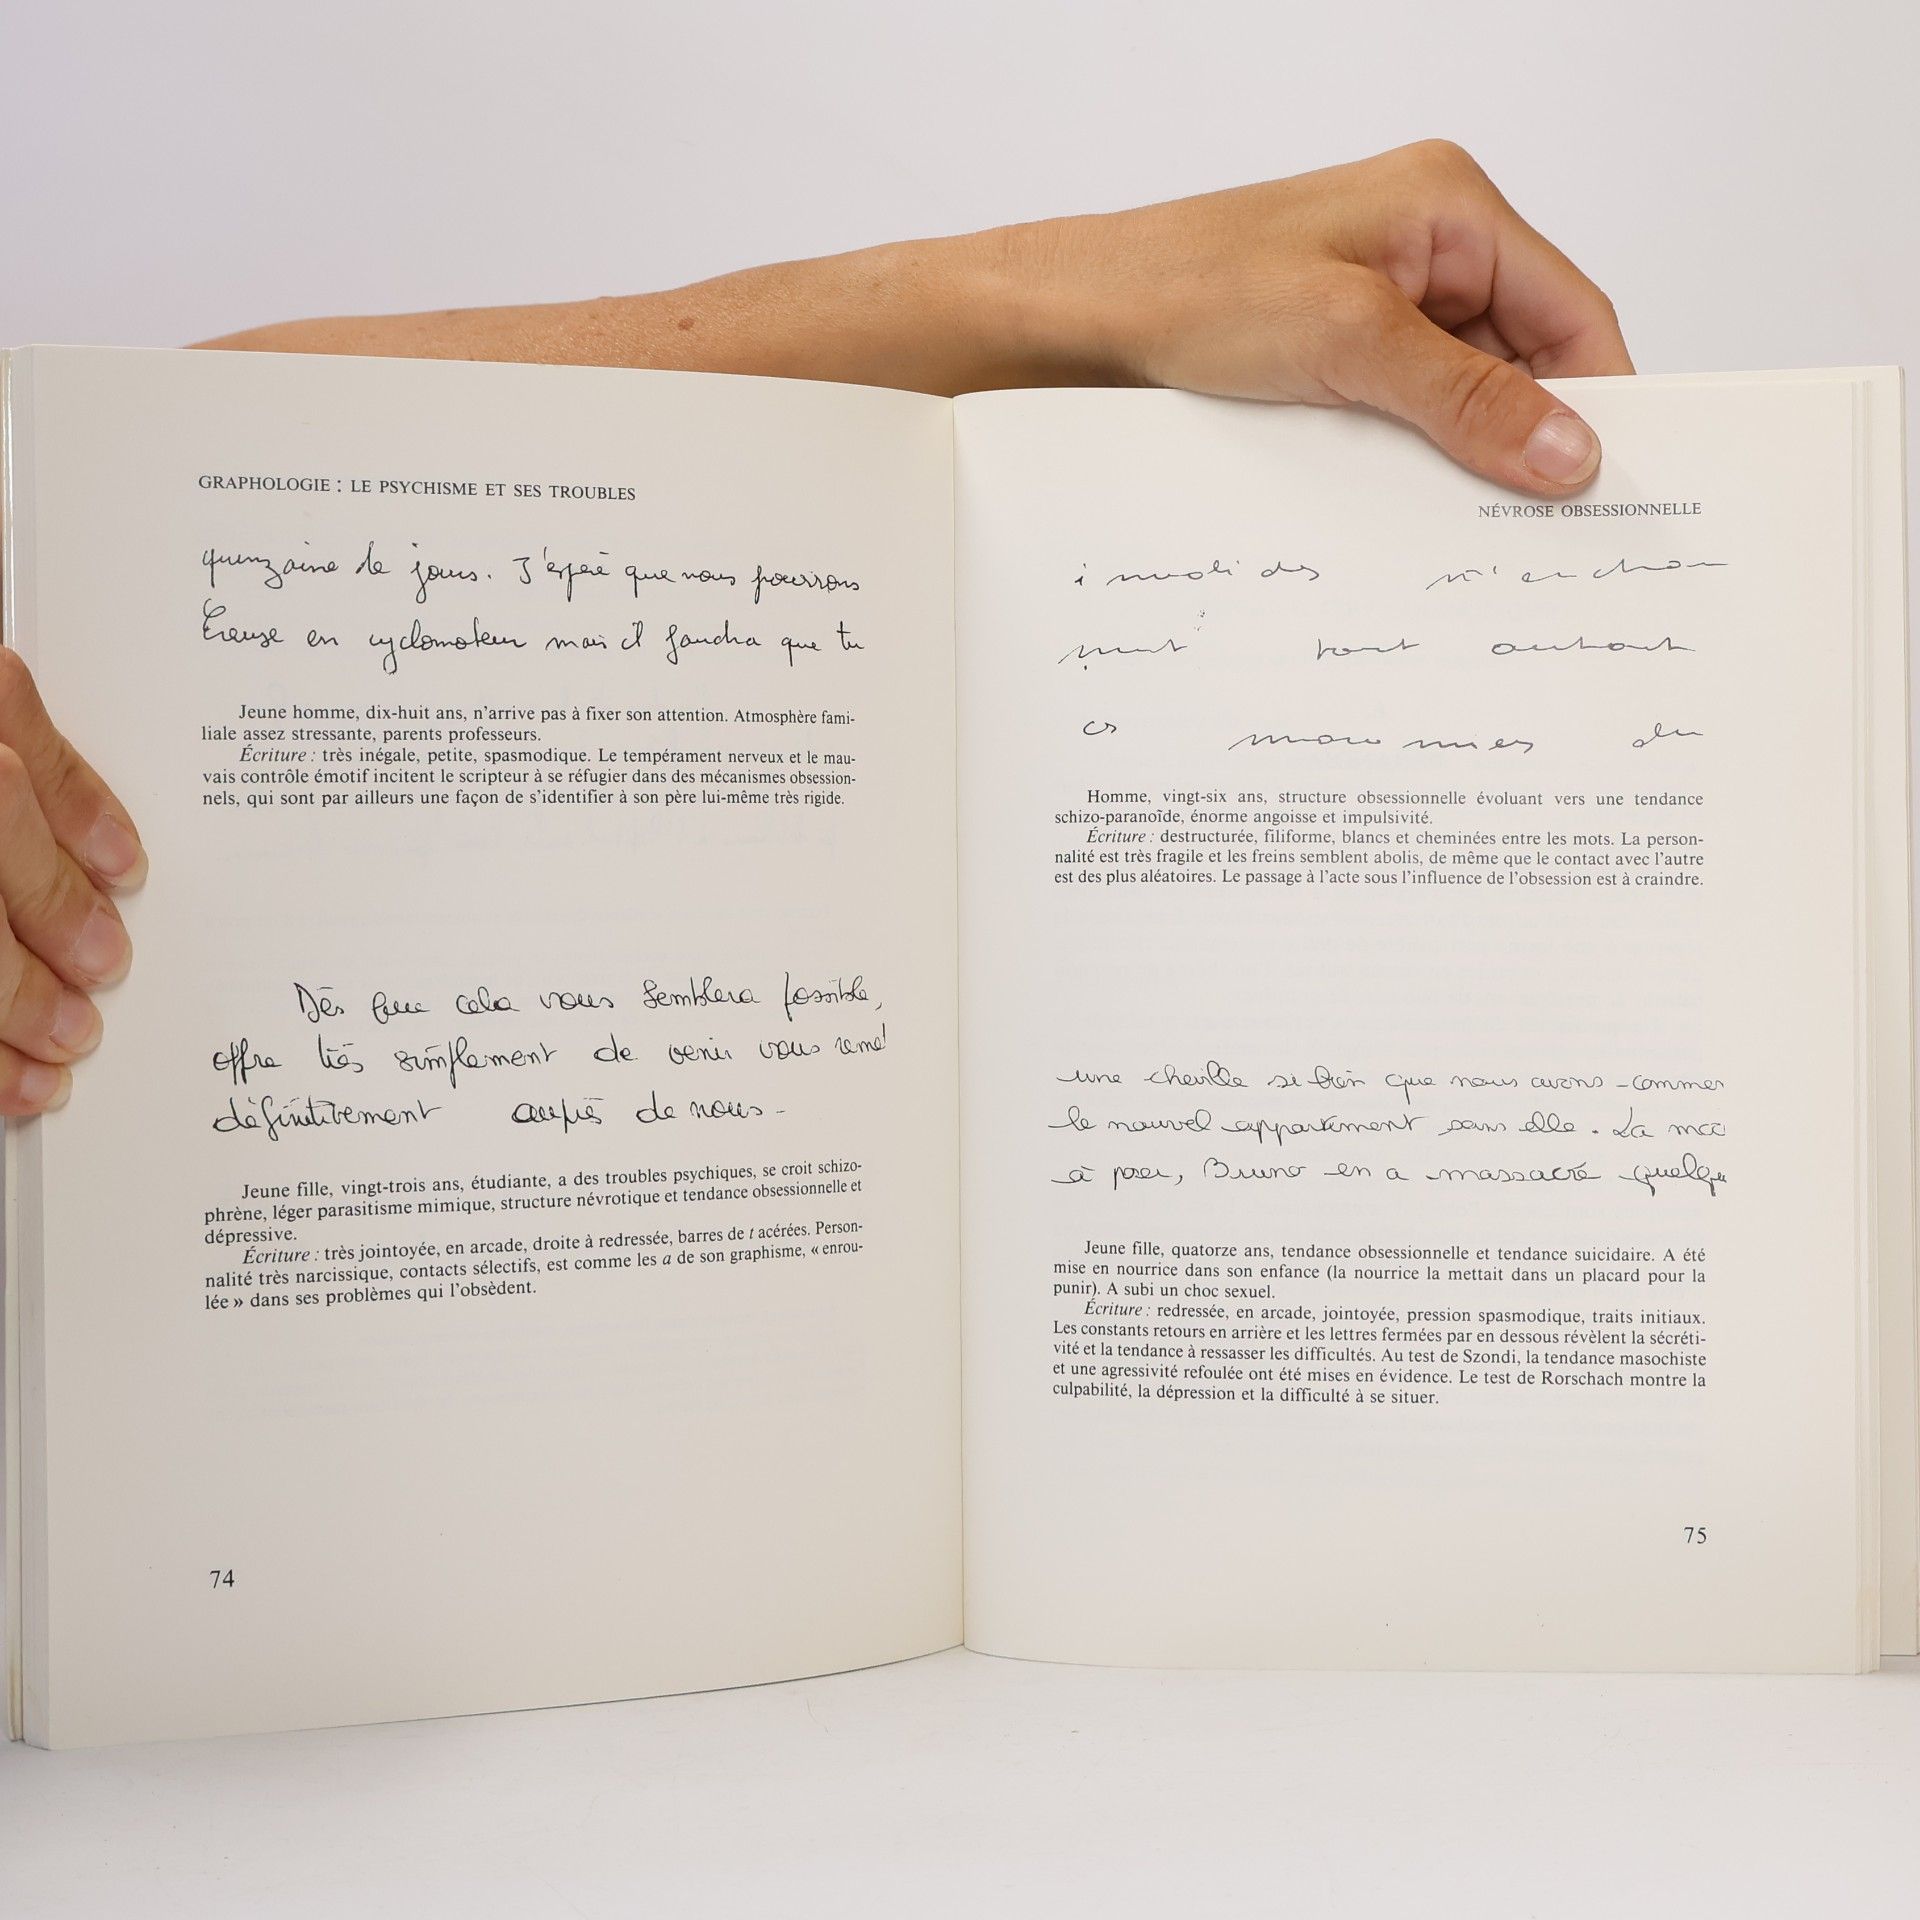 GRAPHOLOGIE : LE PSYCHISME ET SES TROUBLES
quinzaine de jours. J'espère que nous pourrons
Creuse en cyclomoteur mais il faudra que tu
Jeune homme, dix-huit ans, n'arrive pas à fixer son attention. Atmosphère fami-
liale assez stressante, parents professeurs.
Écriture : très inégale, petite, spasmodique. Le tempérament nerveux et le mau-
vais contrôle émotif incitent le scripteur à se réfugier dans des mécanismes obsession-
nels, qui sont par ailleurs une façon de s'identifier à son père lui-même très rigide.
Dès que cela vous semblera possible,
offre très simplement de venir vous
définitivement auprès de nous -
Jeune fille, vingt-trois ans, étudiante, a des troubles psychiques, se croit schizo-
phrène, léger parasitisme mimique, structure névrotique et tendance obsessionnelle et
dépressive.
Écriture : très jointoyée, en arcade, droite à redressée, barres de t acérées. Person-
nalité très narcissique, contacts sélectifs, est comme les a de son graphisme, « enrou-
lée » dans ses problèmes qui l'obsèdent.
74
NÉVROSE OBSESSIONNELLE
tout autour
ces du
Homme, vingt-six ans, structure obsessionnelle évoluant vers une tendance
schizo-paranoïde, énorme angoisse et impulsivité.
Écriture : destructurée, filiforme, blancs et cheminées entre les mots. La person-
nalité est très fragile et les freins semblent abolis, de même que le contact avec l'autre
est des plus aléatoires. Le passage à l'acte sous l'influence de l'obsession est à craindre.
une cheville si bien que nous avons commen
le nouvel appartement sans elle. La
à poser, Bruno en a massacré quelque
Jeune fille, quatorze ans, tendance obsessionnelle et tendance suicidaire. A été
mise en nourrice dans son enfance (la nourrice la mettait dans un placard pour la
punir). A subi un choc sexuel.
Écriture : redressée, en arcade, jointoyée, pression spasmodique, traits initiaux.
Les constants retours en arrière et les lettres fermées par en dessous révèlent la sécréti-
vité et la tendance à ressasser les difficultés. Au test de Szondi, la tendance masochiste
et une agressivité refoulée ont été mises en évidence. Le test de Rorschach montre la
culpabilité, la dépression et la difficulté à se situer.
75